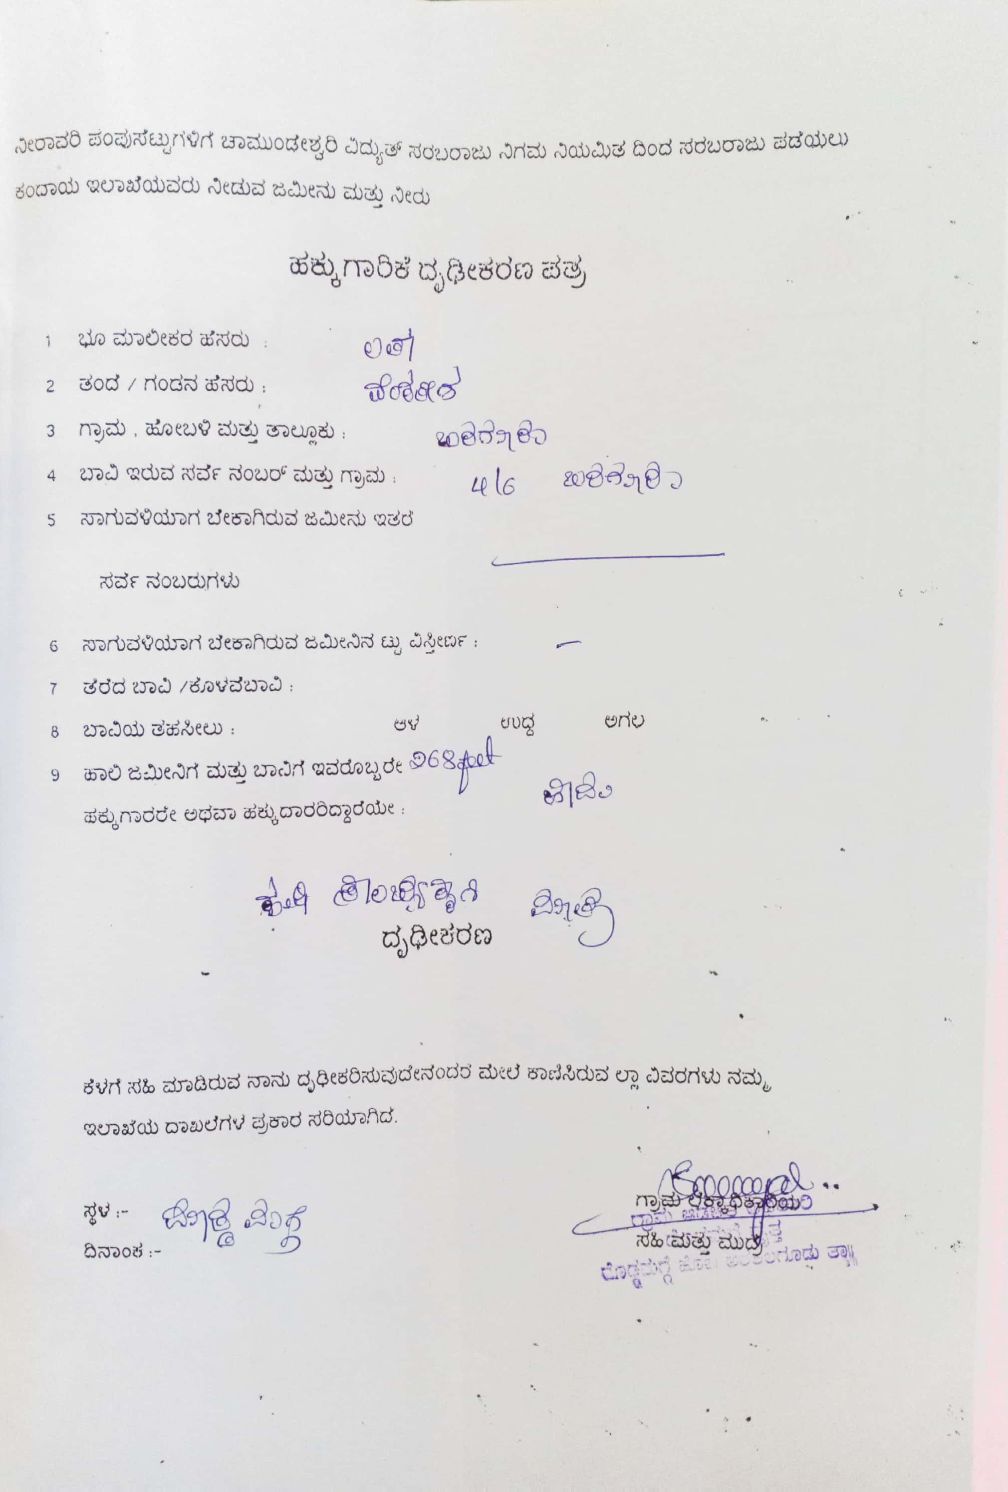 ನೀರಾವರಿ ಪಂಪುಸೆಟ್ಟುಗಳಿಗೆ ಚಾಮುಂಡೇಶ್ವರಿ ವಿದ್ಯುತ್ ಸರಬರಾಜು ನಿಗಮ ನಿಯಮಿತ ದಿಂದ ಸರಬರಾಜು ಪಡೆಯಲು
ಕಂದಾಯ ಇಲಾಖೆಯವರು ನೀಡುವ ಜಮೀನು ಮತ್ತು ನೀರು
ಹಕ್ಕುಗಾರಿಕೆ ದೃಢೀಕರಣ ಪತ್ರ
1 ಭೂ ಮಾಲೀಕರ ಹೆಸರು : ಲತಾ
2 ತಂದೆ / ಗಂಡನ ಹೆಸರು : ವೆಂಕಟೇಶ
3 ಗ್ರಾಮ , ಹೋಬಳಿ ಮತ್ತು ತಾಲ್ಲೂಕು :
4 ಬಾವಿ ಇರುವ ಸರ್ವೆ ನಂಬರ್ ಮತ್ತು ಗ್ರಾಮ : 4/6
5 ಸಾಗುವಳಿಯಾಗ ಬೇಕಾಗಿರುವ ಜಮೀನು ಇತರ
ಸರ್ವೆ ನಂಬರುಗಳು
6 ಸಾಗುವಳಿಯಾಗ ಬೇಕಾಗಿರುವ ಜಮೀನಿನ ಟ್ಟು ವಿಸ್ತೀರ್ಣ : —
7 ತೆರೆದ ಬಾವಿ /ಕೊಳವೆಬಾವಿ :
8 ಬಾವಿಯ ತಹಸೀಲು : ಆಳ ಉದ್ದ ಅಗಲ
9 ಹಾಲಿ ಜಮೀನಿಗೆ ಮತ್ತು ಬಾವಿಗೆ ಇವರೊಬ್ಬರೇ 968 feet
ಹಕ್ಕುಗಾರರೇ ಅಥವಾ ಹಕ್ಕುದಾರರಿದ್ದಾರೆಯೇ : ಹೌದು
ಮಾತ್ರ
ದೃಢೀಕರಣ
ಕೆಳಗೆ ಸಹಿ ಮಾಡಿರುವ ನಾನು ದೃಢೀಕರಿಸುವುದೇನೆಂದರೆ ಮೇಲೆ ಕಾಣಿಸಿರುವ ಲ್ಲಾ ವಿವರಗಳು ನಮ್ಮ
ಇಲಾಖೆಯ ದಾಖಲೆಗಳ ಪ್ರಕಾರ ಸರಿಯಾಗಿದೆ.
ಸ್ಥಳ :-
ಗ್ರಾಮ ಲೆಕ್ಕಾಧಿಕಾರಿಯರ
ದಿನಾಂಕ :-
ಸಹಿ ಮತ್ತು ಮುದ್ರೆ